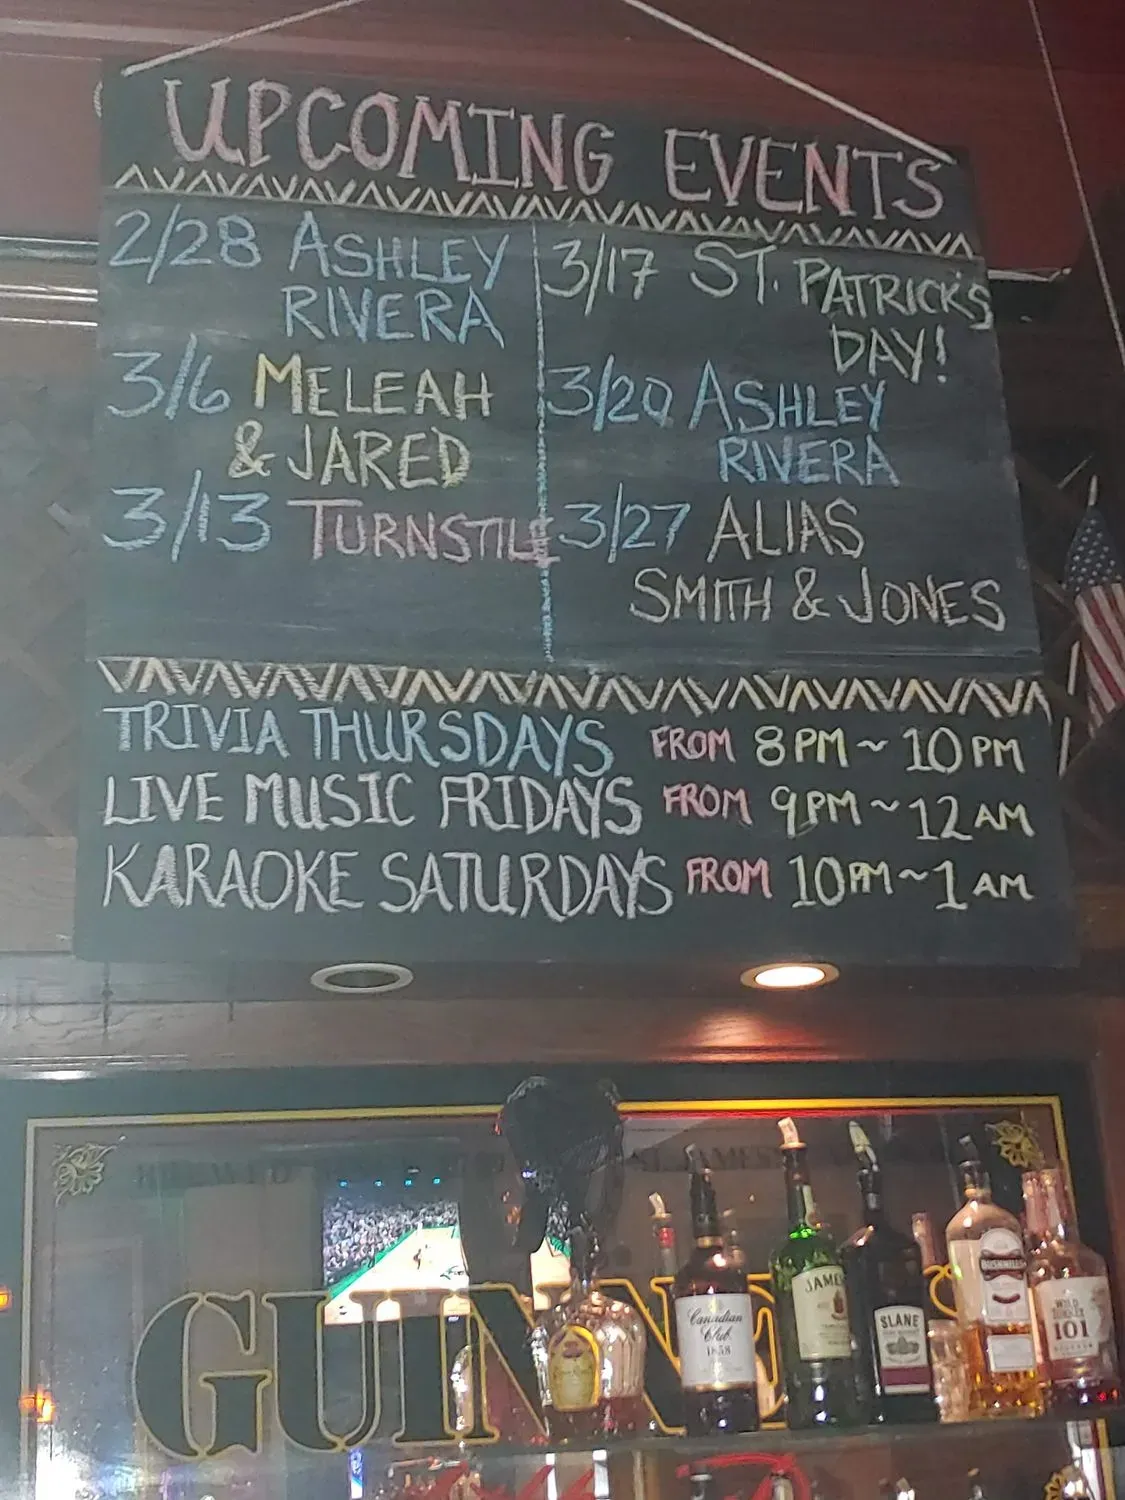 UPCOMING EVENTS
2/28 ASHLEY
RIVERA
3/6 MELEAH
& JARED
3/13 TURNSTILE
3/17 ST. PATRICK'S
DAY!
3/20 ASHLEY
RIVERA
3/27 ALIAS
SMITH & JONES
TRIVIA THURSDAYS FROM 8PM ~ 10PM
LIVE MUSIC FRIDAYS FROM 9PM ~ 12AM
KARAOKE SATURDAYS FROM 10PM ~ 1AM
ST. JAMES'S
GUINNE
Canadian
Club
1858
JAMES
SLANE
BUSHMILLS
WILD
TURKEY
101